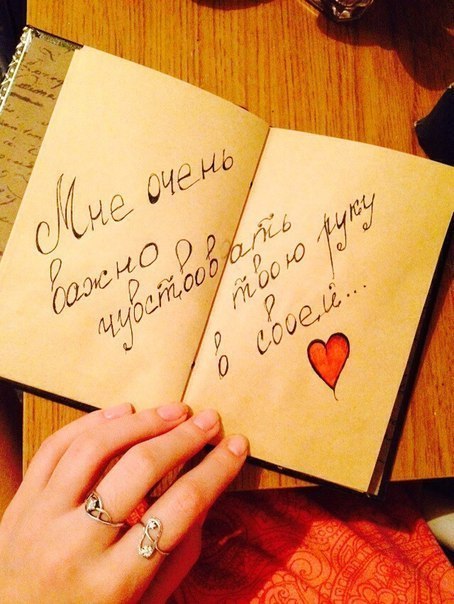 Мне очень
важно
чувствовать
твою руку
в своей...